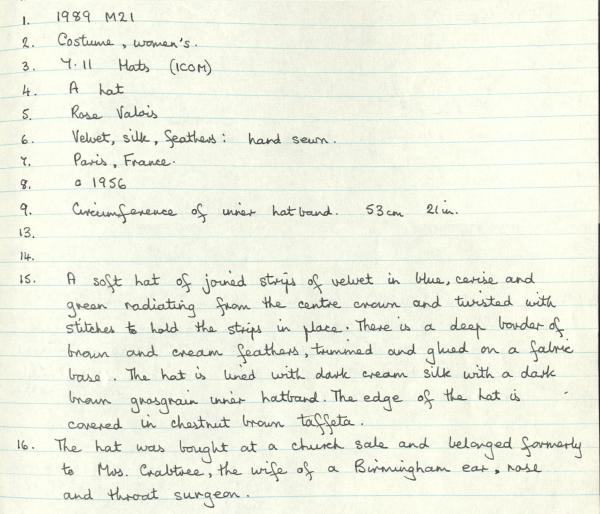 1. 1989 M21
2. Costume, women's.
3. 7.11 Hats (ICOM)
4. A hat
5. Rose Valois
6. Velvet, silk, feathers: hand sewn.
7. Paris, France.
8. c 1956
9. Circumference of inner hatband. 53cm 21in.
13.
14.
15. A soft hat of joined strips of velvet in blue, cerise and
green radiating from the centre crown and twisted with
stitches to hold the strips in place. There is a deep border of
brown and cream feathers, trimmed and glued on a fabric
base. The hat is lined with dark cream silk with a dark
brown grosgrain inner hatband. The edge of the hat is
covered in chestnut brown taffeta.
16. The hat was bought at a church sale and belonged formerly
to Mrs. Crabtree, the wife of a Birmingham ear, nose
and throat surgeon.